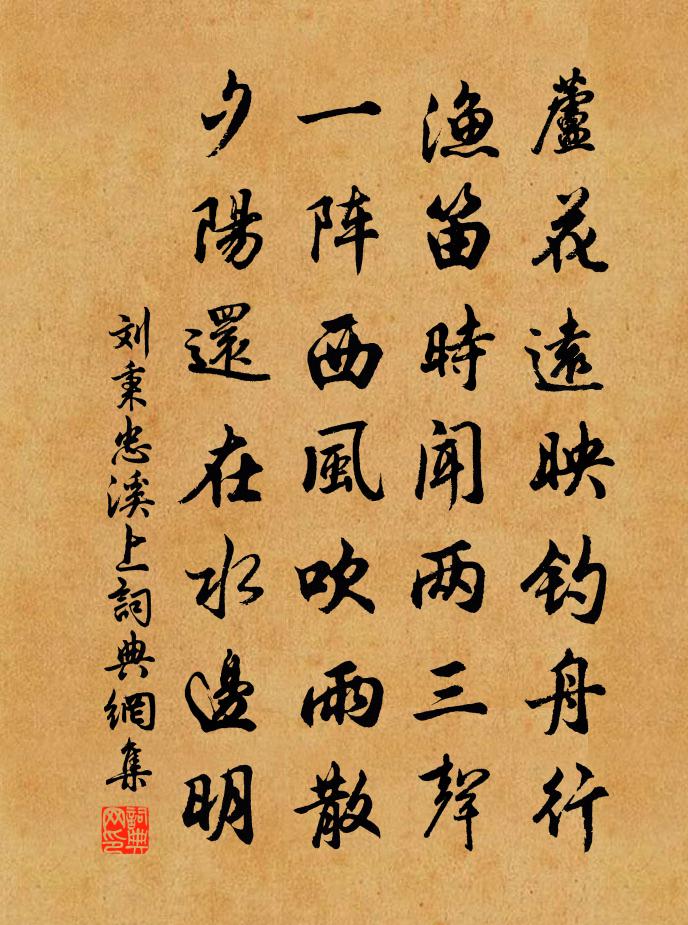 蘆花遠映钓舟行
渔笛時闻两三聲
一阵西風吹雨散
夕陽還在水邊明
刘秉忠溪上詞典網集
詞典网印